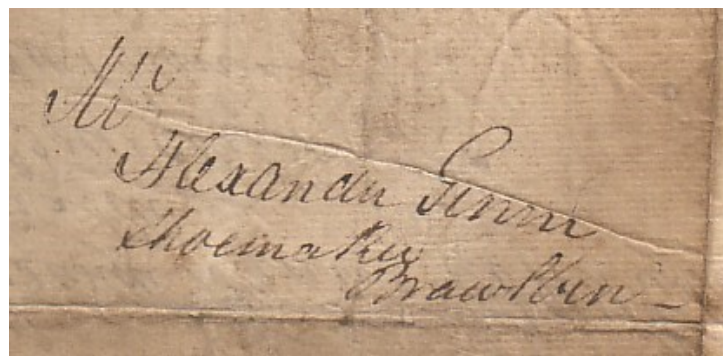 Mr
Alexander Gunn
Shoemaker
Brawlbin